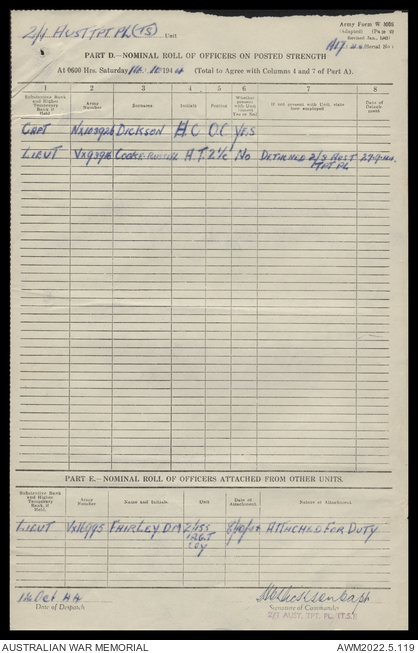 2/1 AUST TPT PL (TS) Unit
Army Form W 3008
(Adapted) (Page 2)
Revised Jan., 1943
Serial No.
PART D.—NOMINAL ROLL OF OFFICERS ON POSTED STRENGTH
At 0600 Hrs. Saturday 194 (Total to Agree with Columns 4 and 7 of Part A).
1 2 3 4 5 6 7 8
Substantive Rank and Higher Temporary Rank if Held Army Number Surname Initials Posting Whether present with Unit (insert Yes or No) If not present with Unit, state how employed Date of Detachment
CAPT NX103926 DICKSON H C OC YES
LIEUT COOKE-RUSSELL A.T. 2 i/c No DETACHED 2/3 AUST
TPT PL
PART E.—NOMINAL ROLL OF OFFICERS ATTACHED FROM OTHER UNITS.
Substantive Rank and Higher Temporary Rank if Held. Army Number Name and Initials. Unit Date of Attachment. Nature of Attachment.
LIEUT VX16995 FAIRLEY D M ATTACHED FOR DUTY
Coy
Oct 44
Date of Despatch
Signature of Commander
2/1 AUST. TPT. PL. (T.S.)
AUSTRALIAN WAR MEMORIAL
AWM2022.5.119